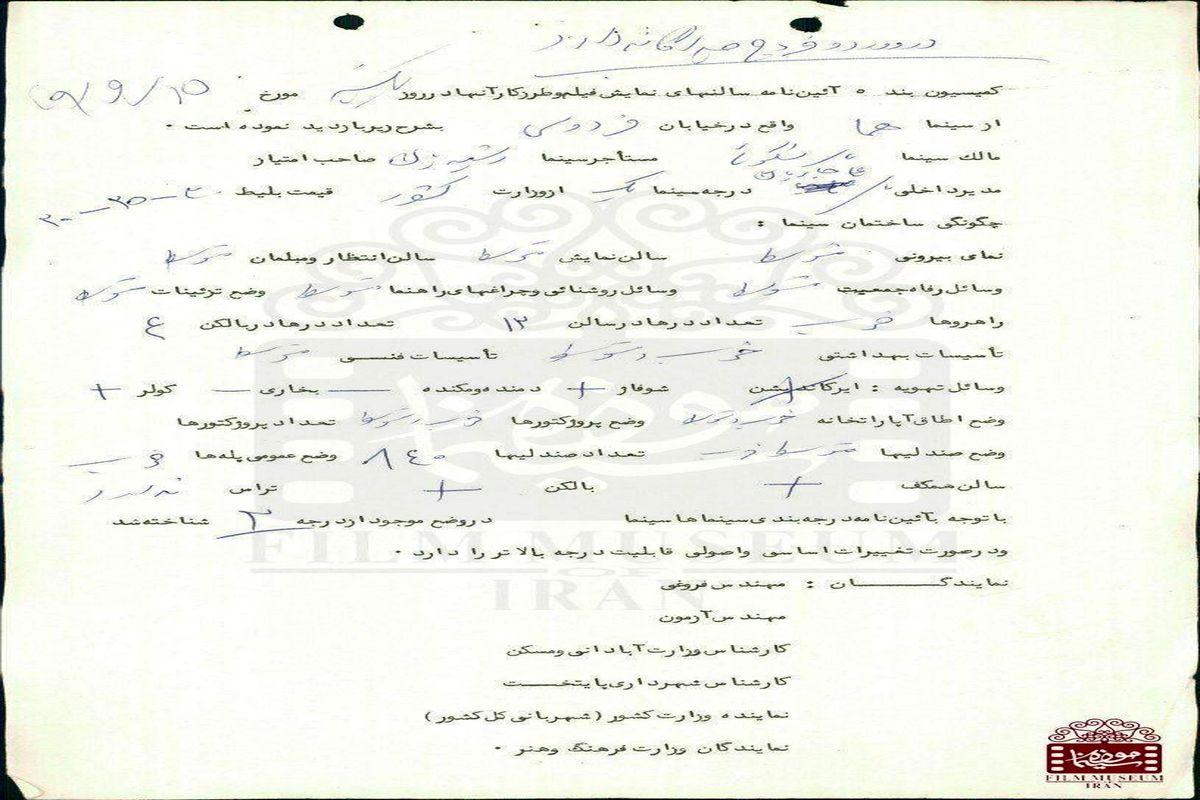 در ورود و خروج جداگانه دارند
کمیسیون بند ه آئین‌نامه سالنهای نمایش فیلم و طرز کار آنها در روز یکشنبه مورخ ۱۵/۹/
از سینما هما واقع در خیابان فردوسی بشرح زیر بازدید نموده است .
مالك سینما مستأجر سینما صاحب امتیاز
مدیر داخلی درجه سینما یک از وزارت کشور قیمت بلیط ۲۰-۲۵-۳۰
چگونگی ساختمان سینما :
نمای بیرونی متوسط سالن نمایش متوسط سالن انتظار و مبلمان متوسط
وسائل رفاه جمعیت متوسط وسائل روشنائی و چراغهای راهنما متوسط وضع تزئینات متوسط
راهروها خوب تعداد درها در سالن ۱۳ تعداد درها در بالکن ۴
تأسیسات بهداشتی خوب و متوسط تأسیسات فنی متوسط
وسائل تهویه : ایرکاندیشن شوفاژ + دمنده و مکنده — بخاری — کولر +
وضع اطاق آپاراتخانه خوب و متوسط وضع پروژکتورها خوب و متوسط تعداد پروژکتورها
وضع صندلیها متوسط خوب تعداد صندلیها ۸۴۰ وضع عمومی پله‌ها خوب
سالن همکف + بالکن + تراس ندارد
با توجه بآئین‌نامه درجه‌بندی سینماها سینما در وضع موجود از درجه ۳ شناخته شد
و در صورت تغییرات اساسی و اصولی قابلیت درجه بالاتر را دارد .
نمایندگان : مهندس فروغی
مهندس آزمون
کارشناس وزارت آبادانی و مسکن
کارشناس شهرداری پایتخت
نماینده وزارت کشور (شهربانی کل کشور)
نمایندگان وزارت فرهنگ و هنر .
FILM MUSEUM
OF
IRAN
موزه سینما
FILM MUSEUM
IRAN